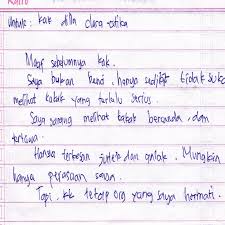 Untuk : kak dilla clara-etika
Maaf sebelumnya kak.
Saya bukan benci, hanya sedikit tidak suka
melihat kakak yang terlalu serius.
Saya senang melihat kakak bercanda, dan
tertawa.
Hanya terkesan jutek dan galak. Mungkin
hanya perasaan saya.
Tapi, kk tetap org yang saya hormati.